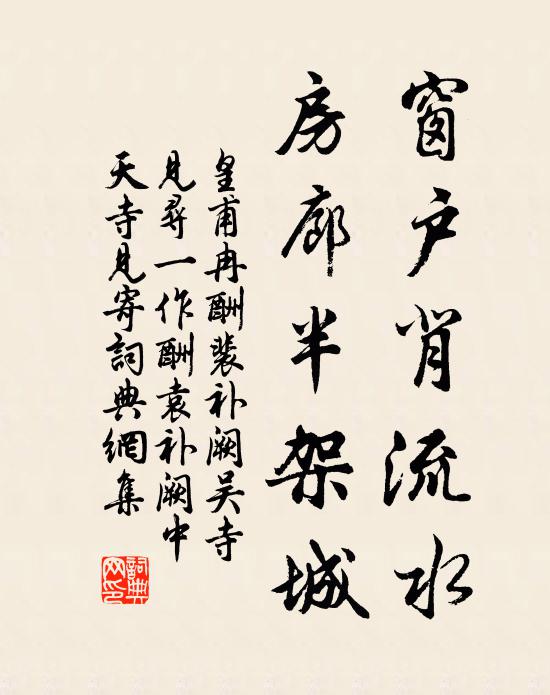 窗户背流水
房廊半架城
皇甫冉酬裴补阙吴寺
见寻一作酬袁补阙中
天寺见寄詞典網集
詞典网印